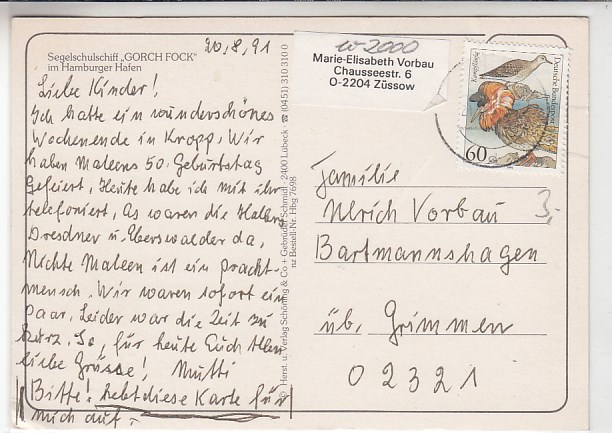 20.8.91
Segelschulschiff „GORCH FOCK"
im Hamburger Hafen
Liebe Kinder!
Ich hatte ein wunderschönes
Wochenende in Kropp. Wir
haben Maleens 50. Geburtstag
gefeiert, Heute habe ich mit ihr
telefoniert, As waren die
Dresdner u. Eberswalder da,
Nichte Maleen ist ein Pracht-
mensch. Wir waren sofort ein
Paar. Leider war die Zeit zu
kurz. So, für heute Euch Allen
liebe Grüsse! Mutti
Bitte! hebt diese Karte für
mich auf.
Herst. u. Verlag Schöning & Co + Gebrüder Schmidt · 2400 Lübeck · ☎ (0451) 310 310 0
nz Bestell-Nr. Hbg 7698
w-2000
Marie-Elisabeth Vorbau
Chausseestr. 6
O-2204 Züssow
Deutsche Bundespost
60
Familie
Ulrich Vorbau
3,-
Bartmannshagen
üb. Grimmen
02321